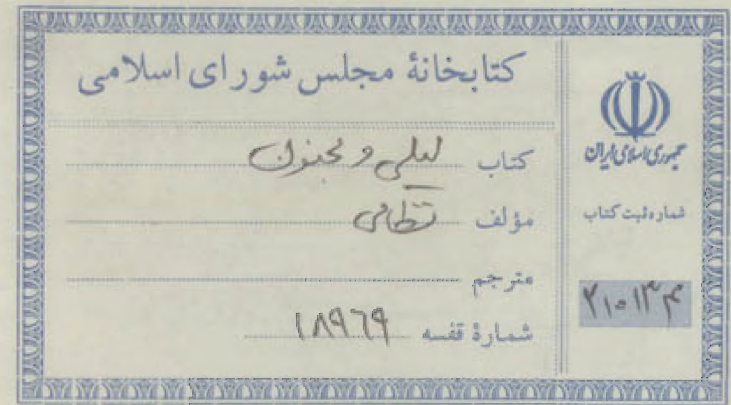 کتابخانهٔ مجلس شورای اسلامی
کتاب لیلی و مجنون
مؤلف نظامی
مترجم
شمارهٔ قفسه ۱۸۹۶۹
جمهوری اسلامی ایران
شماره ثبت کتاب
۲۱۰۱۳۴